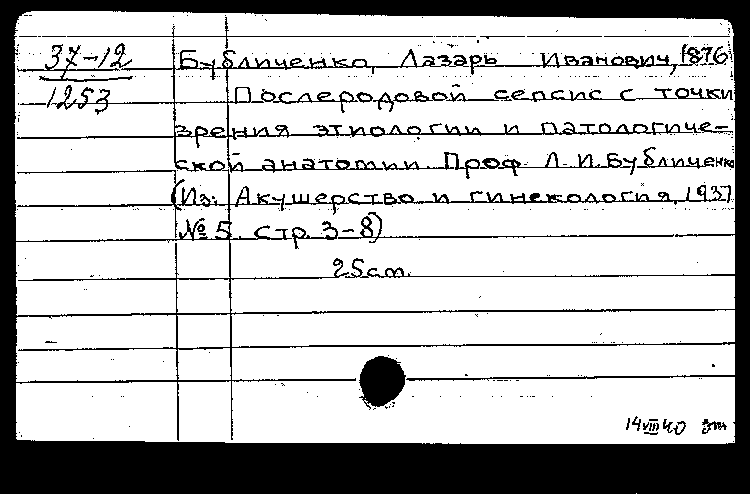 37-12
1253
Бубличенко, Лазарь Иванович, 1876
Послеродовой сепсис с точки
зрения этиологии и патологиче-
ской анатомии. Проф. Л.И.Бубличенко
(Из: Акушерство и гинекология, 1937
№ 5. стр. 3-8)
25 cm.
14 VIII 40